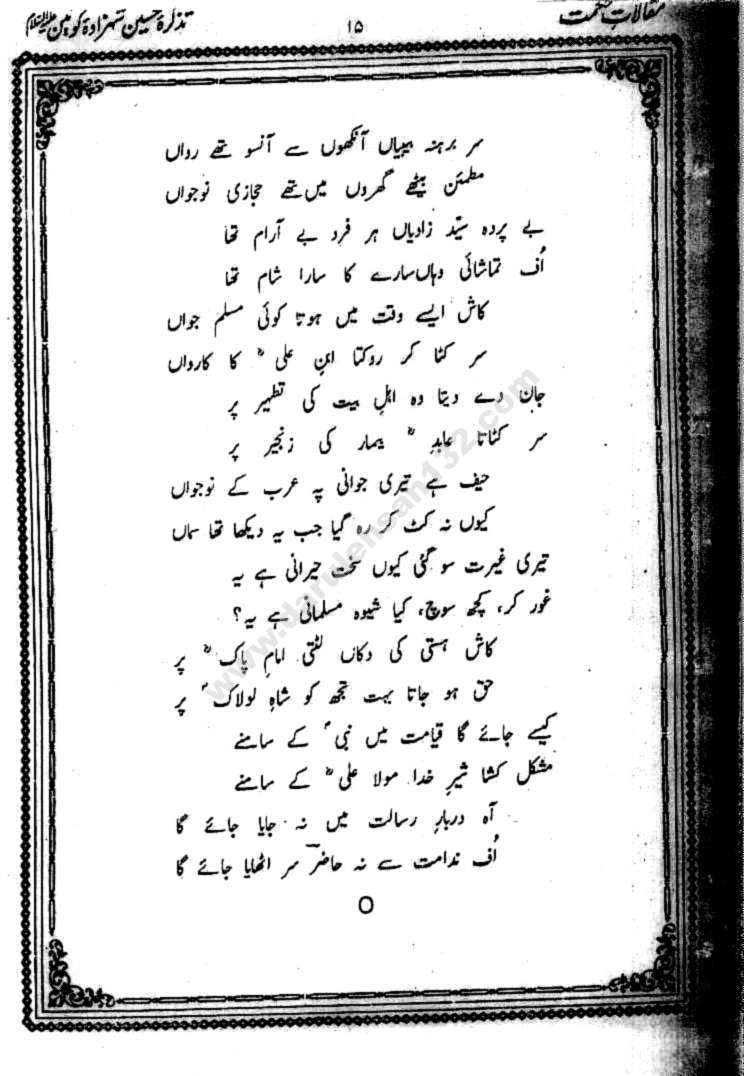 مقالاتِ حکمت
۱۵
تذکرۂ حسین شہزادۂ کونین ﷺ
سر برہنہ بیبیاں آنکھوں سے آنسو تھے رواں
مطمئن بیٹھے گھروں میں تھے حجازی نوجواں
بے پردہ سیّد زادیاں ہر فرد بے آرام تھا
اُف تماشائی وہاں سارے کا سارا شام تھا
کاش ایسے وقت میں ہوتا کوئی مسلم جواں
سر کٹا کر روکتا ابنِ علیؓ کا کارواں
جان دے دیتا وہ اہلِ بیت کی تطہیر پر
سر کٹاتا عابدِؓ بیمار کی زنجیر پر
حیف ہے تیری جوانی پہ عرب کے نوجواں
کیوں نہ کٹ کر رہ گیا جب یہ دیکھا تھا سماں
تیری غیرت سو گئی کیوں سخت حیرانی ہے یہ
غور کر، کچھ سوچ، کیا شیوہ مسلمانی ہے یہ؟
کاش ہستی کی دکاں لٹتی امامِ پاکؓ پر
حق ہو جاتا بہت تجھ کو شاہِ لولاکؐ پر
کیسے جائے گا قیامت میں نبیؐ کے سامنے
مشکل کشا شیرِ خدا مولا علیؓ کے سامنے
آہ دربارِ رسالت میں نہ جایا جائے گا
اُف ندامت سے نہ حاضرؔ سر اٹھایا جائے گا
www.darulehsan132.com